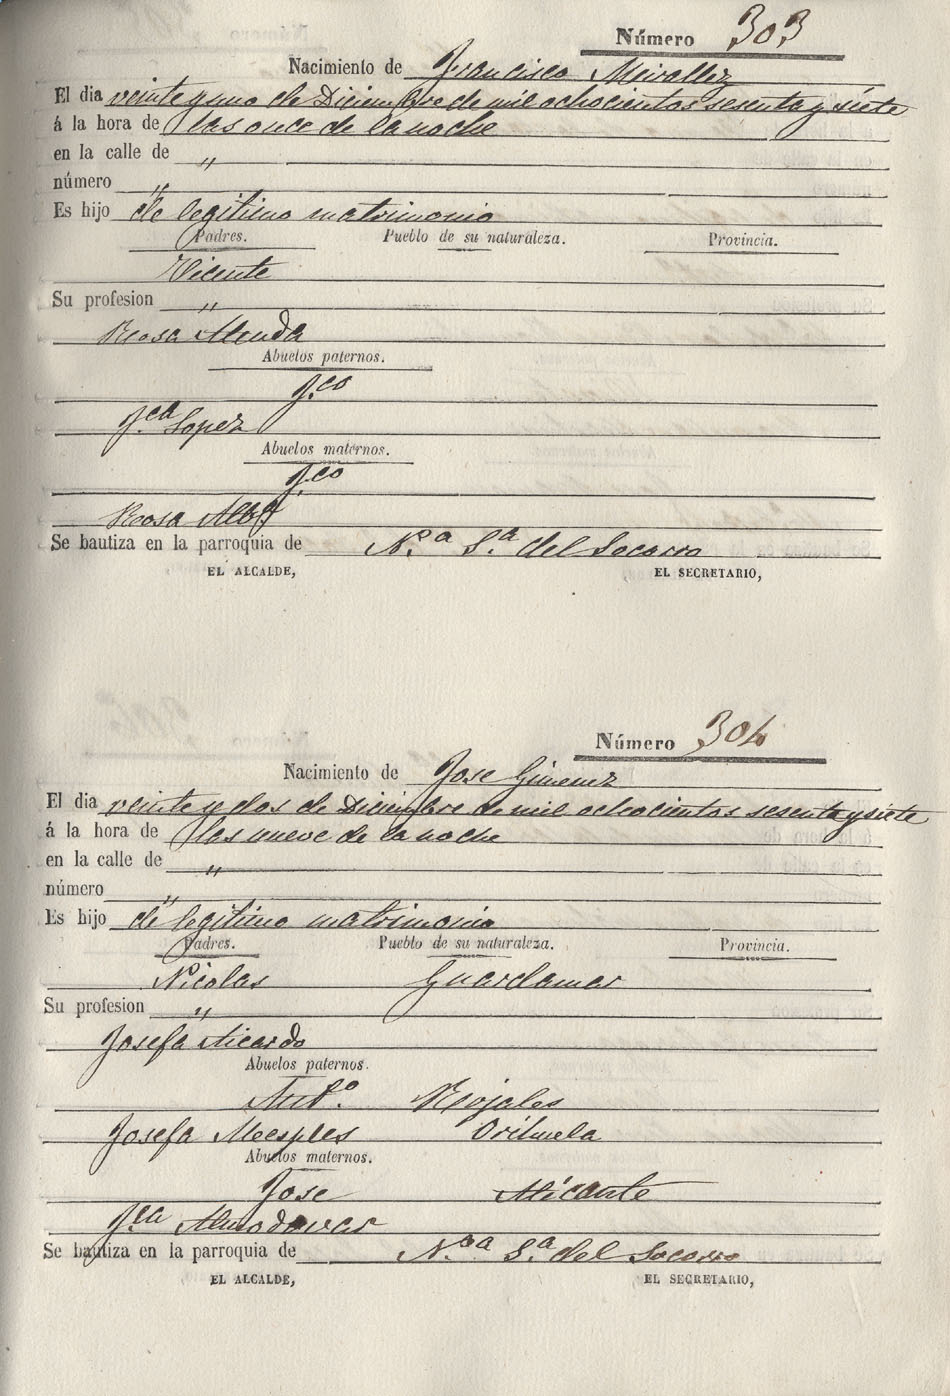 Número 303
Nacimiento de Francisco Mirallez
El dia veinte y uno de Diciembre de mil ochocientos sesenta y siete
á la hora de las once de la noche
en la calle de "
número "
Es hijo de legitimo matrimonio
Padres. Pueblo de su naturaleza. Provincia.
Vicente
Su profesion "
Rosa
Abuelos paternos.
Fco
Fca Lopez
Abuelos maternos.
Fco
Rosa
Se bautiza en la parroquia de N.ª S.ª del Socorro
EL ALCALDE, EL SECRETARIO,
Número 304
Nacimiento de Jose Gimenez
El dia veinte y dos de Diciembre de mil ochocientos sesenta y siete
á la hora de las nueve de la noche
en la calle de "
número "
Es hijo de legitimo matrimonio
Padres. Pueblo de su naturaleza. Provincia.
Nicolas Guardamar
Su profesion "
Josefa Aicardo
Abuelos paternos.
Ant.º Rojales
Josefa Orihuela
Abuelos maternos.
Jose Alicante
Fca Almodovar
Se bautiza en la parroquia de N.ª S.ª del Socorro
EL ALCALDE, EL SECRETARIO,